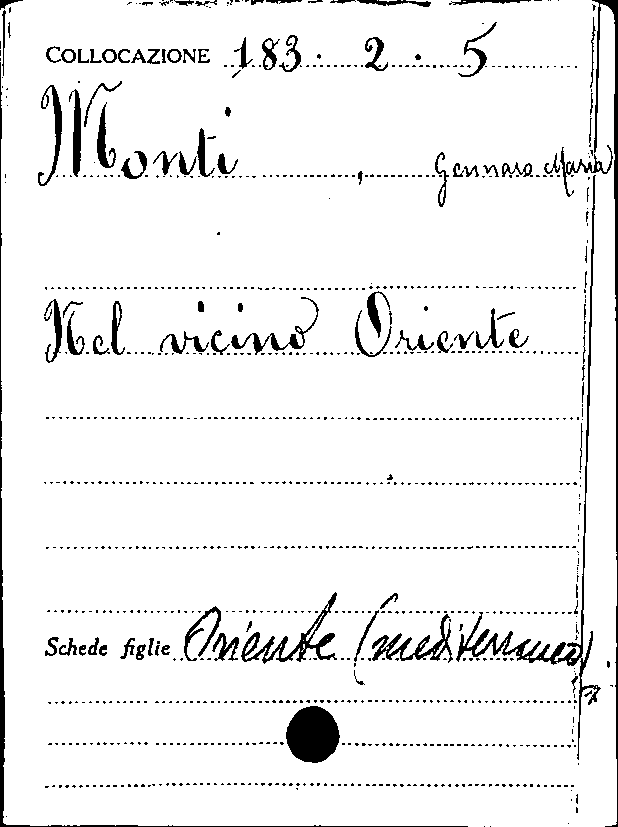 COLLOCAZIONE 183. 2. 5
Monti, Gennaro Maria
Nel vicino Oriente
Schede figlie Oriente (mediterraneo)